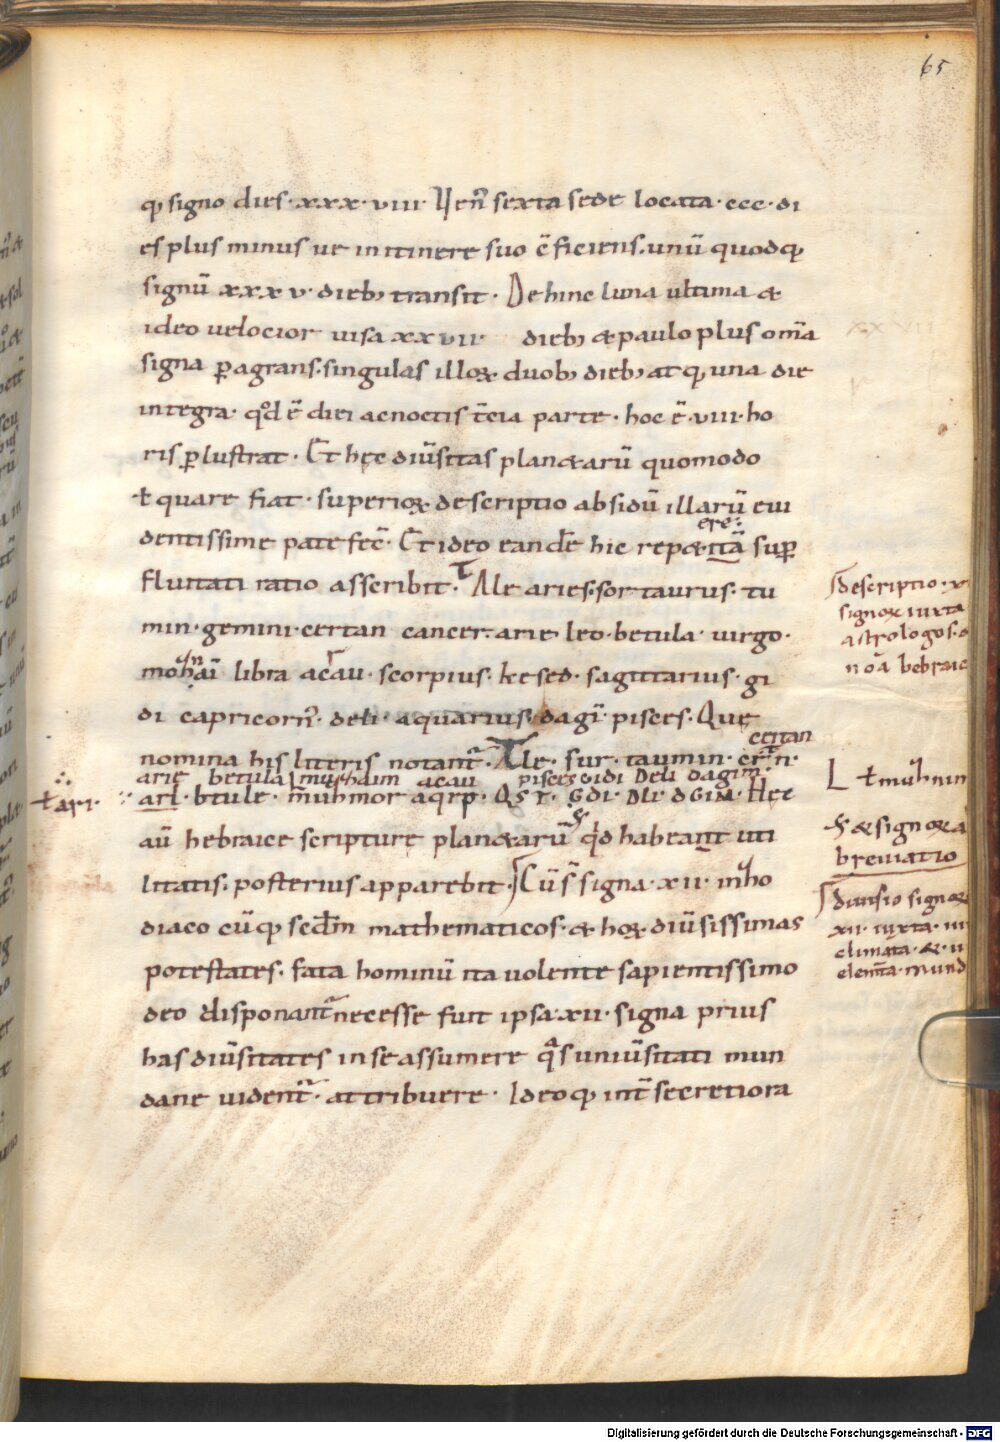 65
qꝫ signo dies · xxx · viii · Ven̄ sexta sede locata · ccc · di
es plus minus ve in itinere suo c̄ficiens · unū quodqꝫ
signū xxx v · diebꝫ transit · Dehinc luna ultima &
ideo velocior visa xxvii diebꝫ & paulo plus om̄a
signa ꝑagrans · singulas illoꝝ duobꝫ diebꝫ atqꝫ una die
integra · qd̄ ē diei ac noctis t̄cia parte · hoc ē · viii · ho
ris ꝑlustrat · Et hęc diūsitas plan&arū quomodo
ł quare fiat · superioꝝ descriptio absidū illarū evi
ere
dentissime patefec̄ · Et ideo eandē hic rep&itā suꝑ
fluitati ratio asscribit · Ale aries · sor taurus · tu
min · gemini · certan cancer · arie leo · betula · virgo ·
libra acrau · scorpius · kesed · sagittarius · gi
di capricorn̄ · deli · aquarius · dagī · pisces · Que
nomina his literis notant̄ · Ale · sur · taumin · cr̄n ·
certan
arie betula acau pisces gidi Deli dagim
arl · btule · m̄uhmor aqrp · Qsr · GDi · DLi · DGIM · Hęc
ł ari ·
aū hebraice scripture plan&arū qd̄ habeant uti
litatis · posterius apparebit · Cūs̄ signa · xii · in ho
diaco cūqꝫ scd̄m mathematicos · & hoꝝ diūsissimas
potestates · fata hominū ita volente sapientissimo
deo disponant̄ necesse fuit ipsa · xii · signa prius
has diūsitates in se assumere q̄s uniūsitati mun
dane vident̄ · attribuere · Ideoqꝫ int̄ secretiora
descriptio · x
signoꝝ iuxta
astrologos ·
nōa hebraic
ł muhnim
& signoꝝ a
breviatio
divisio signoꝝ
xii · iuxta · iii
climata · & · ii
elem̄ta · mund
Digitalisierung gefördert durch die Deutsche Forschungsgemeinschaft - DFG